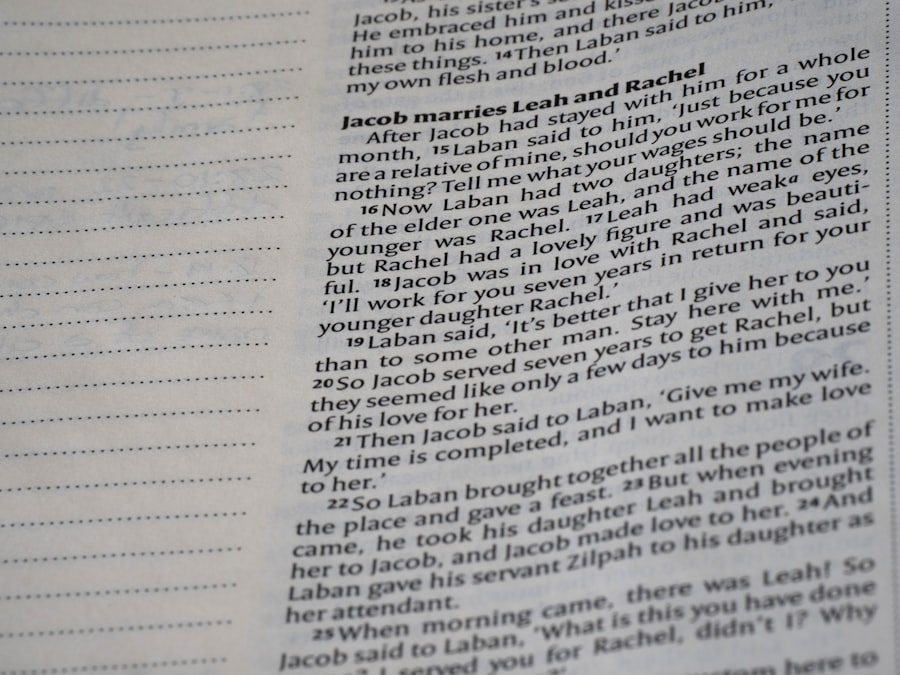 Jacob, his sister's
He embraced him and
him to his home, and there Jacob
these things. 14 Then Laban said to him,
my own flesh and blood.'
Jacob marries Leah and Rachel
After Jacob had stayed with him for a whole
month, 15 Laban said to him, 'Just because you
are a relative of mine, should you work for me for
nothing? Tell me what your wages should be.'
16 Now Laban had two daughters; the name
of the elder one was Leah, and the name of the
younger was Rachel. 17 Leah had weak a eyes,
but Rachel had a lovely figure and was beauti-
ful. 18 Jacob was in love with Rachel and said,
'I'll work for you seven years in return for your
younger daughter Rachel.'
19 Laban said, 'It's better that I give her to you
than to some other man. Stay here with me.'
20 So Jacob served seven years to get Rachel, but
they seemed like only a few days to him because
of his love for her.
21 Then Jacob said to Laban, 'Give me my wife.
My time is completed, and I want to make love
to her.'
22 So Laban brought together all the people of
the place and gave a feast. 23 But when evening
came, he took his daughter Leah and brought
her to Jacob, and Jacob made love to her. 24 And
Laban gave his servant Zilpah to his daughter as
her attendant.
25 When morning came, there was Leah! So
Jacob said to Laban, 'What is this you have done
I served you for Rachel, didn't I? Why
here to